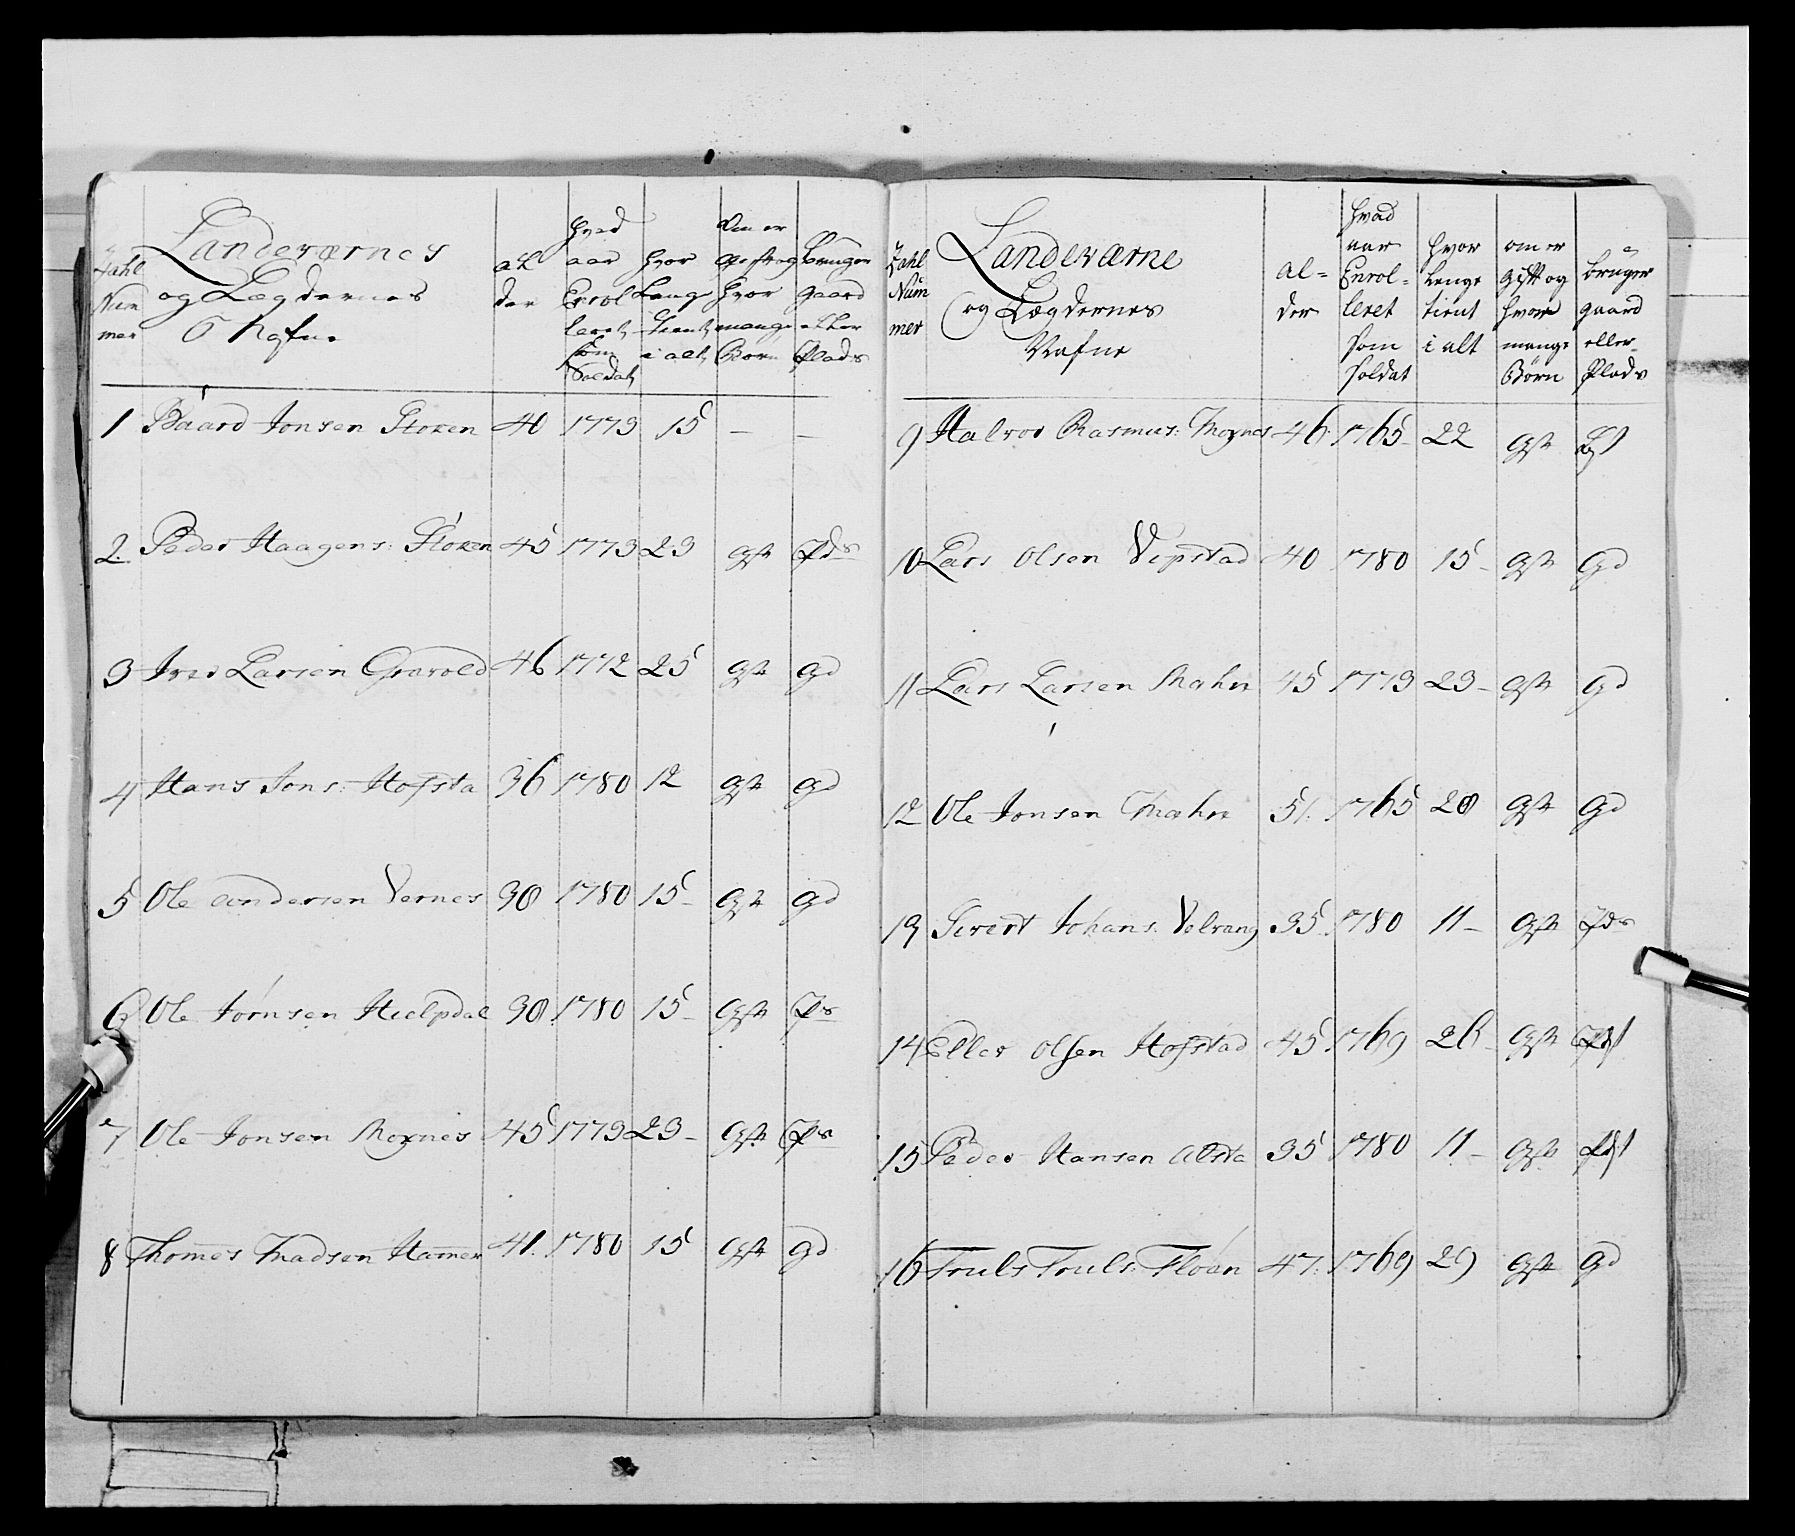 Zahl Num mer
Landeværnes og Lægdernes Nafne
al der
hvad aar Enrolleret som Soldat
hvor Længe tient i alt
Om er gift og hvor mange Børn
bruger gaard eller Plads
1 Baard Jonsen Stoxen 40 1773 15 — —
2. Peder Haagens: Stoxen 45 1773 23 gft Pds
3 Iver Larsen Gravold 46 1772 25 gft gd
4 Hans Jons: Hofsta 36 1780 12 gft gd
5 Ole andersen Vernes 38 1780 15 gft gd
6 Ole Jörnsen Hielpdal 38 1780 15 gft Ps
7 Ole Jonsen Moxnes 45 1773 23 gft Ps
8 Thomes Madsen Hamer 41. 1780 15 gft gd
Zahl Num mer
Landeværne og Lægdernes Nafne
al= der
hvad aar Enrol= leret som soldat
hvor Lenge tient i alt
om er gift og hvor mange Børn
bruger gaard eller Plads
9 Halvor Rasmus: Moxnes 46. 1765 22 gft
10 Lars Olsen Vipstad 40 1780 15 gft gd
11 Lars Larsen Mæhre 45 1773 23 gft gd
12 Ole Jonsen Mæhre 51. 1765 28 gft gd
13 Sivert Johans: Velvang 35 1780 11 gft Pds
14 Eller Olsen Hofstad 45 1769 26 gft
15 Peder Hansen Alsta 35 1780 11 gft
16 Truls Truls: Floan 47. 1769 29 gft gd